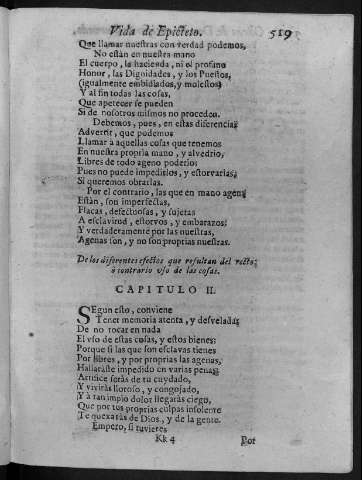 Vida de Epicteto. 519
Que llamar nuestras con verdad podemos,
No están en nuestra mano
El cuerpo, la hacienda, ni el profano
Honor, las Dignidades, y los Puestos,
(igualmente embidiados, y molestos)
Y al fin todas las cosas,
Que apetecer se pueden
Si de nosotros mismos no proceden.
Debemos, pues, en estas diferencias
Advertir, que podemos
Llamar à aquellas cosas que tenemos
En nuestra propria mano, y alvedrio,
Libres de todo ageno poderio:
Pues no puede impedirlos, y estorvarlas,
Si queremos obrarlas.
Por el contrario, las que en mano agena
Estàn, son imperfectas,
Flacas, defectuosas, y sujetas
A esclavitud, estorvos, y embarazos:
Y verdaderamente por las nuestras,
Agenas son, y no son proprias nuestras.
De los diferentes efectos que resultan del recto,
ò contrario uso de las cosas.
CAPITULO II.
SEgun esto, conviene
Tener memoria atenta, y desvelada;
De no tocar en nada
El vso de estas cosas, y estos bienes:
Porque si las que son esclavas tienes
Por libres, y por proprias las agenas,
Hallaràste impedido en varias penas;
Artifice seràs de tu cuydado,
Y viviràs lloroso, y congojado,
Y à tan impio dolor llegaràs ciego,
Que por tus proprias culpas insolente
Te quexaràs de Dios, y de la gente.
Empero, si tuvieres
Kk 4 Por